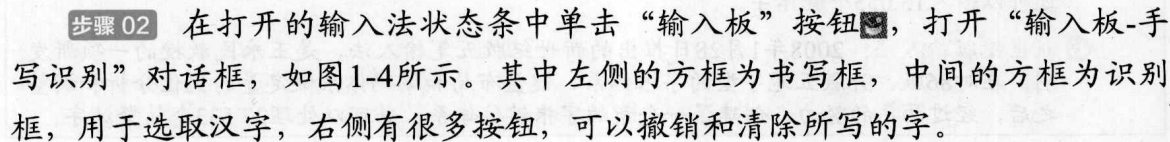 步骤 02 在打开的输入法状态条中单击“输入板”按钮，打开“输入板-手
写识别”对话框，如图1-4所示。其中左侧的方框为书写框，中间的方框为识别
框，用于选取汉字，右侧有很多按钮，可以撤销和清除所写的字。